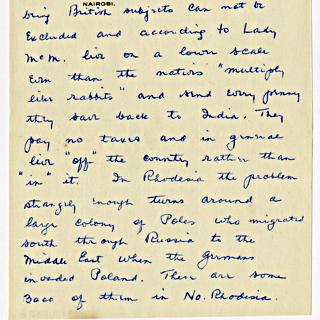 NAIROBI.
being British subjects can not be
excluded and according to Lady
McM. live on a lower scale
even than the natives "multiply
like rabbits" and send every penny
they save back to India. They
pay no taxes and in general
live "off" the country rather than
"in" it. In Rhodesia the problem
strangely enough turns around a
large colony of Poles who migrated
south through Russia to the
Middle East when the Germans
invaded Poland. There are some
3000 of them in No. Rhodesia.